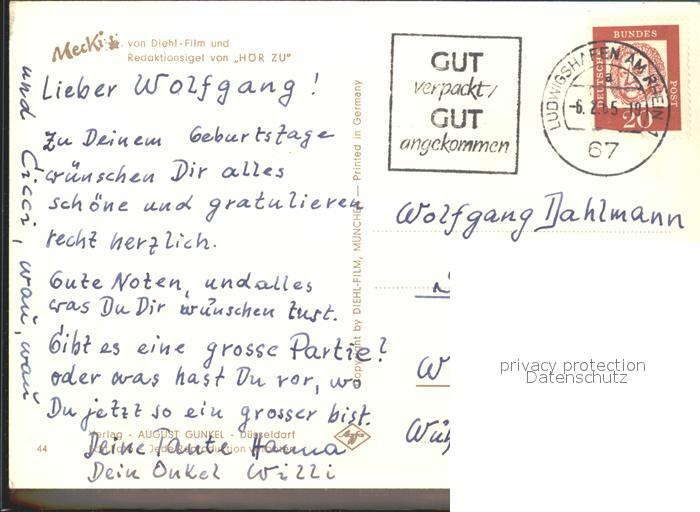 Mecki
von Diehl-Film und
Redaktionsigel von „HÖR ZU"
Lieber Wolfgang!
Zu Deinem Geburtstage
wünschen Dir alles
schöne und gratulieren
recht herzlich.
Gute Noten, und alles
was Du Dir wünschen tust.
Gibt es eine grosse Partie?
oder was hast Du vor, wo
Du jetzt so ein grosser bist.
Deine Tante Hanna
Dein Onkel Willi
und Cicci, wau, wau
Verlag - AUGUST GUNKEL - Düsseldorf
44
Agfa
Copyright by DIEHL-FILM, MÜNCHEN — Printed in Germany
GUT
verpackt/
GUT
angekommen
LUDWIGSHAFEN AM RHEIN
a
-6.2.65-19
67
DEUTSCHE
BUNDES
POST
20
Wolfgang Dahlmann
W
Wüh
privacy protection
Datenschutz